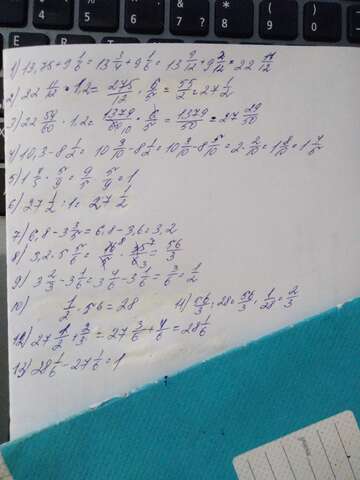 1) 13,75+9 1/6 = 13 3/4 + 9 1/6 = 13 9/12 + 9 2/12 = 22 11/12
2) 22 11/12 · 1,2 = 275/12 · 6/5 = 55/2 = 27 1/2
3) 22 59/60 · 1,2 = 1379/60 10 · 6/5 = 1379/50 = 27 29/50
4) 10,3 - 8 1/2 = 10 3/10 - 8 1/2 = 10 3/10 - 8 5/10 = 2 2/10 = 1 8/10 = 1 4/5
5) 1 4/5 · 5/9 = 9/5 · 5/9 = 1
6) 27 1/2 : 1 = 27 1/2
7) 6,8 - 3 3/5 = 6,8 - 3,6 = 3,2
8) 3,2 · 5 5/6 = 16 8/5 · 35 7/6 3 = 56/3
9) 3 2/3 - 3 1/6 = 3 4/6 - 3 1/6 = 3/6 = 1/2
10) 1/2 · 56 = 28 11) 56/3 : 28 = 56/3 · 1/28 = 2/3
12) 27 1/2 + 2/3 = 27 3/6 + 4/6 = 28 1/6
13) 28 1/6 - 27 1/6 = 1